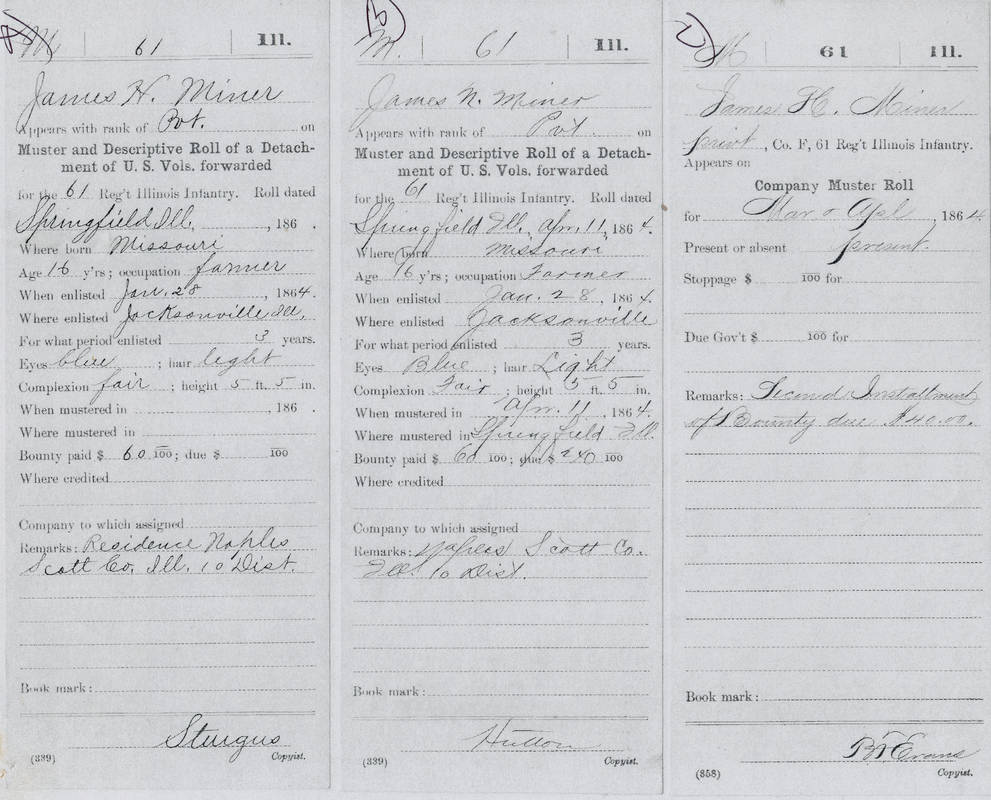 A)
M | 61 | Ill.
James H. Miner
Appears with rank of Pvt. on
Muster and Descriptive Roll of a Detach-
ment of U. S. Vols. forwarded
for the 61 Reg't Illinois Infantry. Roll dated
Springfield, Ill. , 186 .
Where born Missouri
Age 16 y'rs; occupation farmer
When enlisted Jan. 28 , 1864.
Where enlisted Jacksonville Ill,
For what period enlisted 3 years.
Eyes blue ; hair light
Complexion fair ; height 5 ft. 5 in.
When mustered in , 186 .
Where mustered in
Bounty paid $ 60 100; due $ 100
Where credited
Company to which assigned
Remarks: Residence Naples
Scott Co, Ill. 10 Dist.
Book mark:
Sturgus
(339) Copyist.
B)
M. | 61 | Ill.
James N. Miner
Appears with rank of Pvt. on
Muster and Descriptive Roll of a Detach-
ment of U. S. Vols. forwarded
for the 61 Reg't Illinois Infantry. Roll dated
Springfield Ill., Apr. 11, 1864.
Where born Missouri
Age 16 y'rs; occupation Farmer
When enlisted Jan. 28 , 1864.
Where enlisted Jacksonville
For what period enlisted 3 years.
Eyes Blue ; hair Light
Complexion Fair ; height 5 ft. 5 in.
When mustered in Apr. 11 , 1864.
Where mustered in Springfield Ill.
Bounty paid $ 60 100; due $ 240 100
Where credited
Company to which assigned
Remarks: Scott Co.
Ills. 10 Dist.
Book mark:
Hutton
(339) Copyist.
C)
M | 61 | Ill.
James H. Miner
privt , Co. F, 61 Reg't Illinois Infantry.
Appears on
Company Muster Roll
for Mar & Apl , 1864
Present or absent present.
Stoppage $ 100 for
Due Gov't $ 100 for
Remarks: Second Installment
of Bounty due $40.00.
Book mark:
Evans
(358) Copyist.